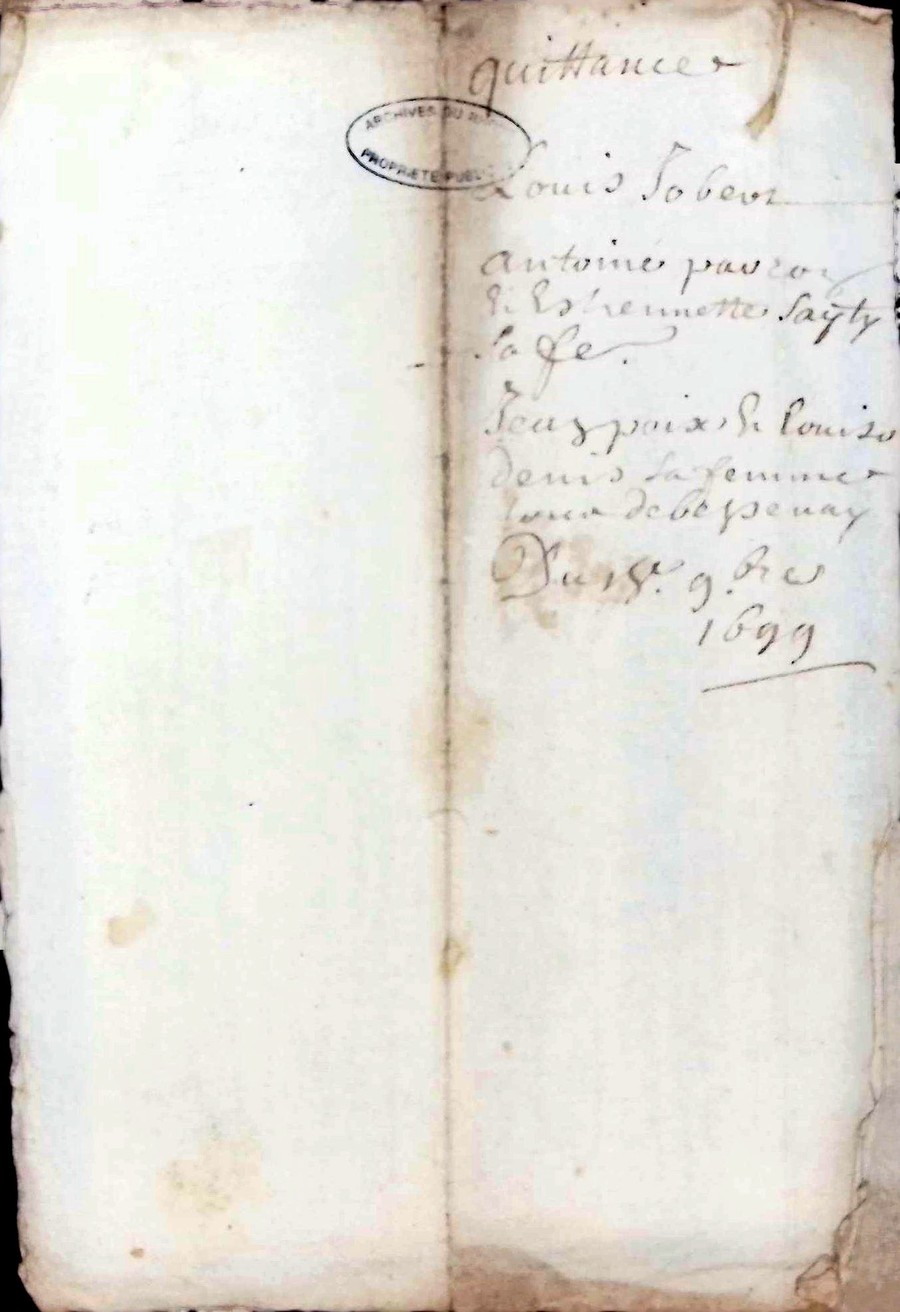 quittance
ARCHIVES DU
PROPRIETE PUBLIQUE
Louis Jobert
Antoine
Et Esthennette Sayty
Sa fe.
Jean poix Et Louise
denis Sa femme
Du 15e. 9.bre
1699